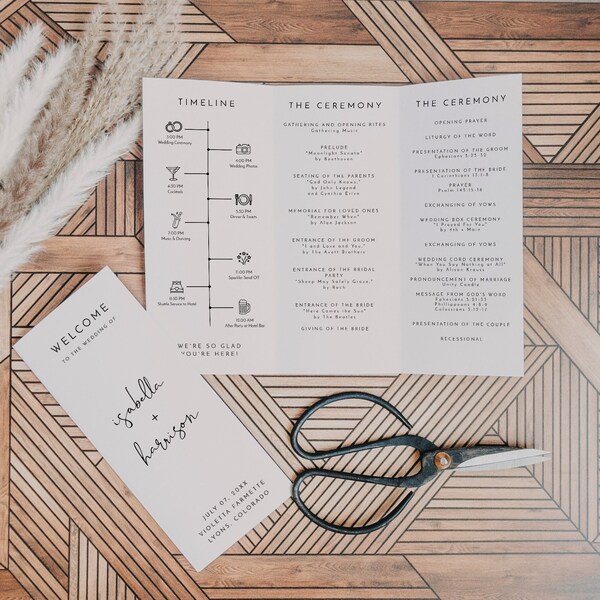 TIMELINE
3:00 PM
Wedding Ceremony
4:00 PM
Wedding Photos
4:30 PM
Cocktails
5:30 PM
Dinner & Toasts
7:00 PM
Music & Dancing
Sparkler Send Off
Shuttle Service to Hotel
After Party at Hotel Bar
WE'RE SO GLAD
YOU'RE HERE!
THE CEREMONY
GATHERING AND OPENING RITES
Gathering Music
PRELUDE
"Moonlight Sonata"
by Beethoven
SEATING OF THE PARENTS
"God Only Knows,"
by John Legend
and Cynthia Erivo
MEMORIAL FOR LOVED ONES
"Remember When"
by Alan Jackson
ENTRANCE OF THE GROOM
"I and Love and You,"
by The Avett Brothers
ENTRANCE OF THE BRIDAL
PARTY
"Sheep May Safely Graze,"
by Bach
ENTRANCE OF THE BRIDE
"Here Comes the Sun"
by The Beatles
GIVING OF THE BRIDE
THE CEREMONY
OPENING PRAYER
LITURGY OF THE WORD
PRESENTATION OF THE GROOM
Ephesians 5:25-33
PRESENTATION OF THE BRIDE
1 Corinthians 13:1-8
PRAYER
Psalm 145:15-16
EXCHANGING OF VOWS
WEDDING BOX CEREMONY
"I Prayed For You"
by 4th + Main
EXCHANGING OF VOWS
WEDDING CORD CEREMONY
"When You Say Nothing at All"
by Alison Krauss
PRONOUNCEMENT OF MARRIAGE
Unity Candle
MESSAGE FROM GOD'S WORD
Ephesians 5:21-33
Philippians 4:4-8
Colossians 3:12-17
PRESENTATION OF THE COUPLE
RECESSIONAL
WELCOME
TO THE WEDDING OF
isabella
+
harrison
JULY 07, 20XX
VIOLETTA FARMETTE
LYONS, COLORADO